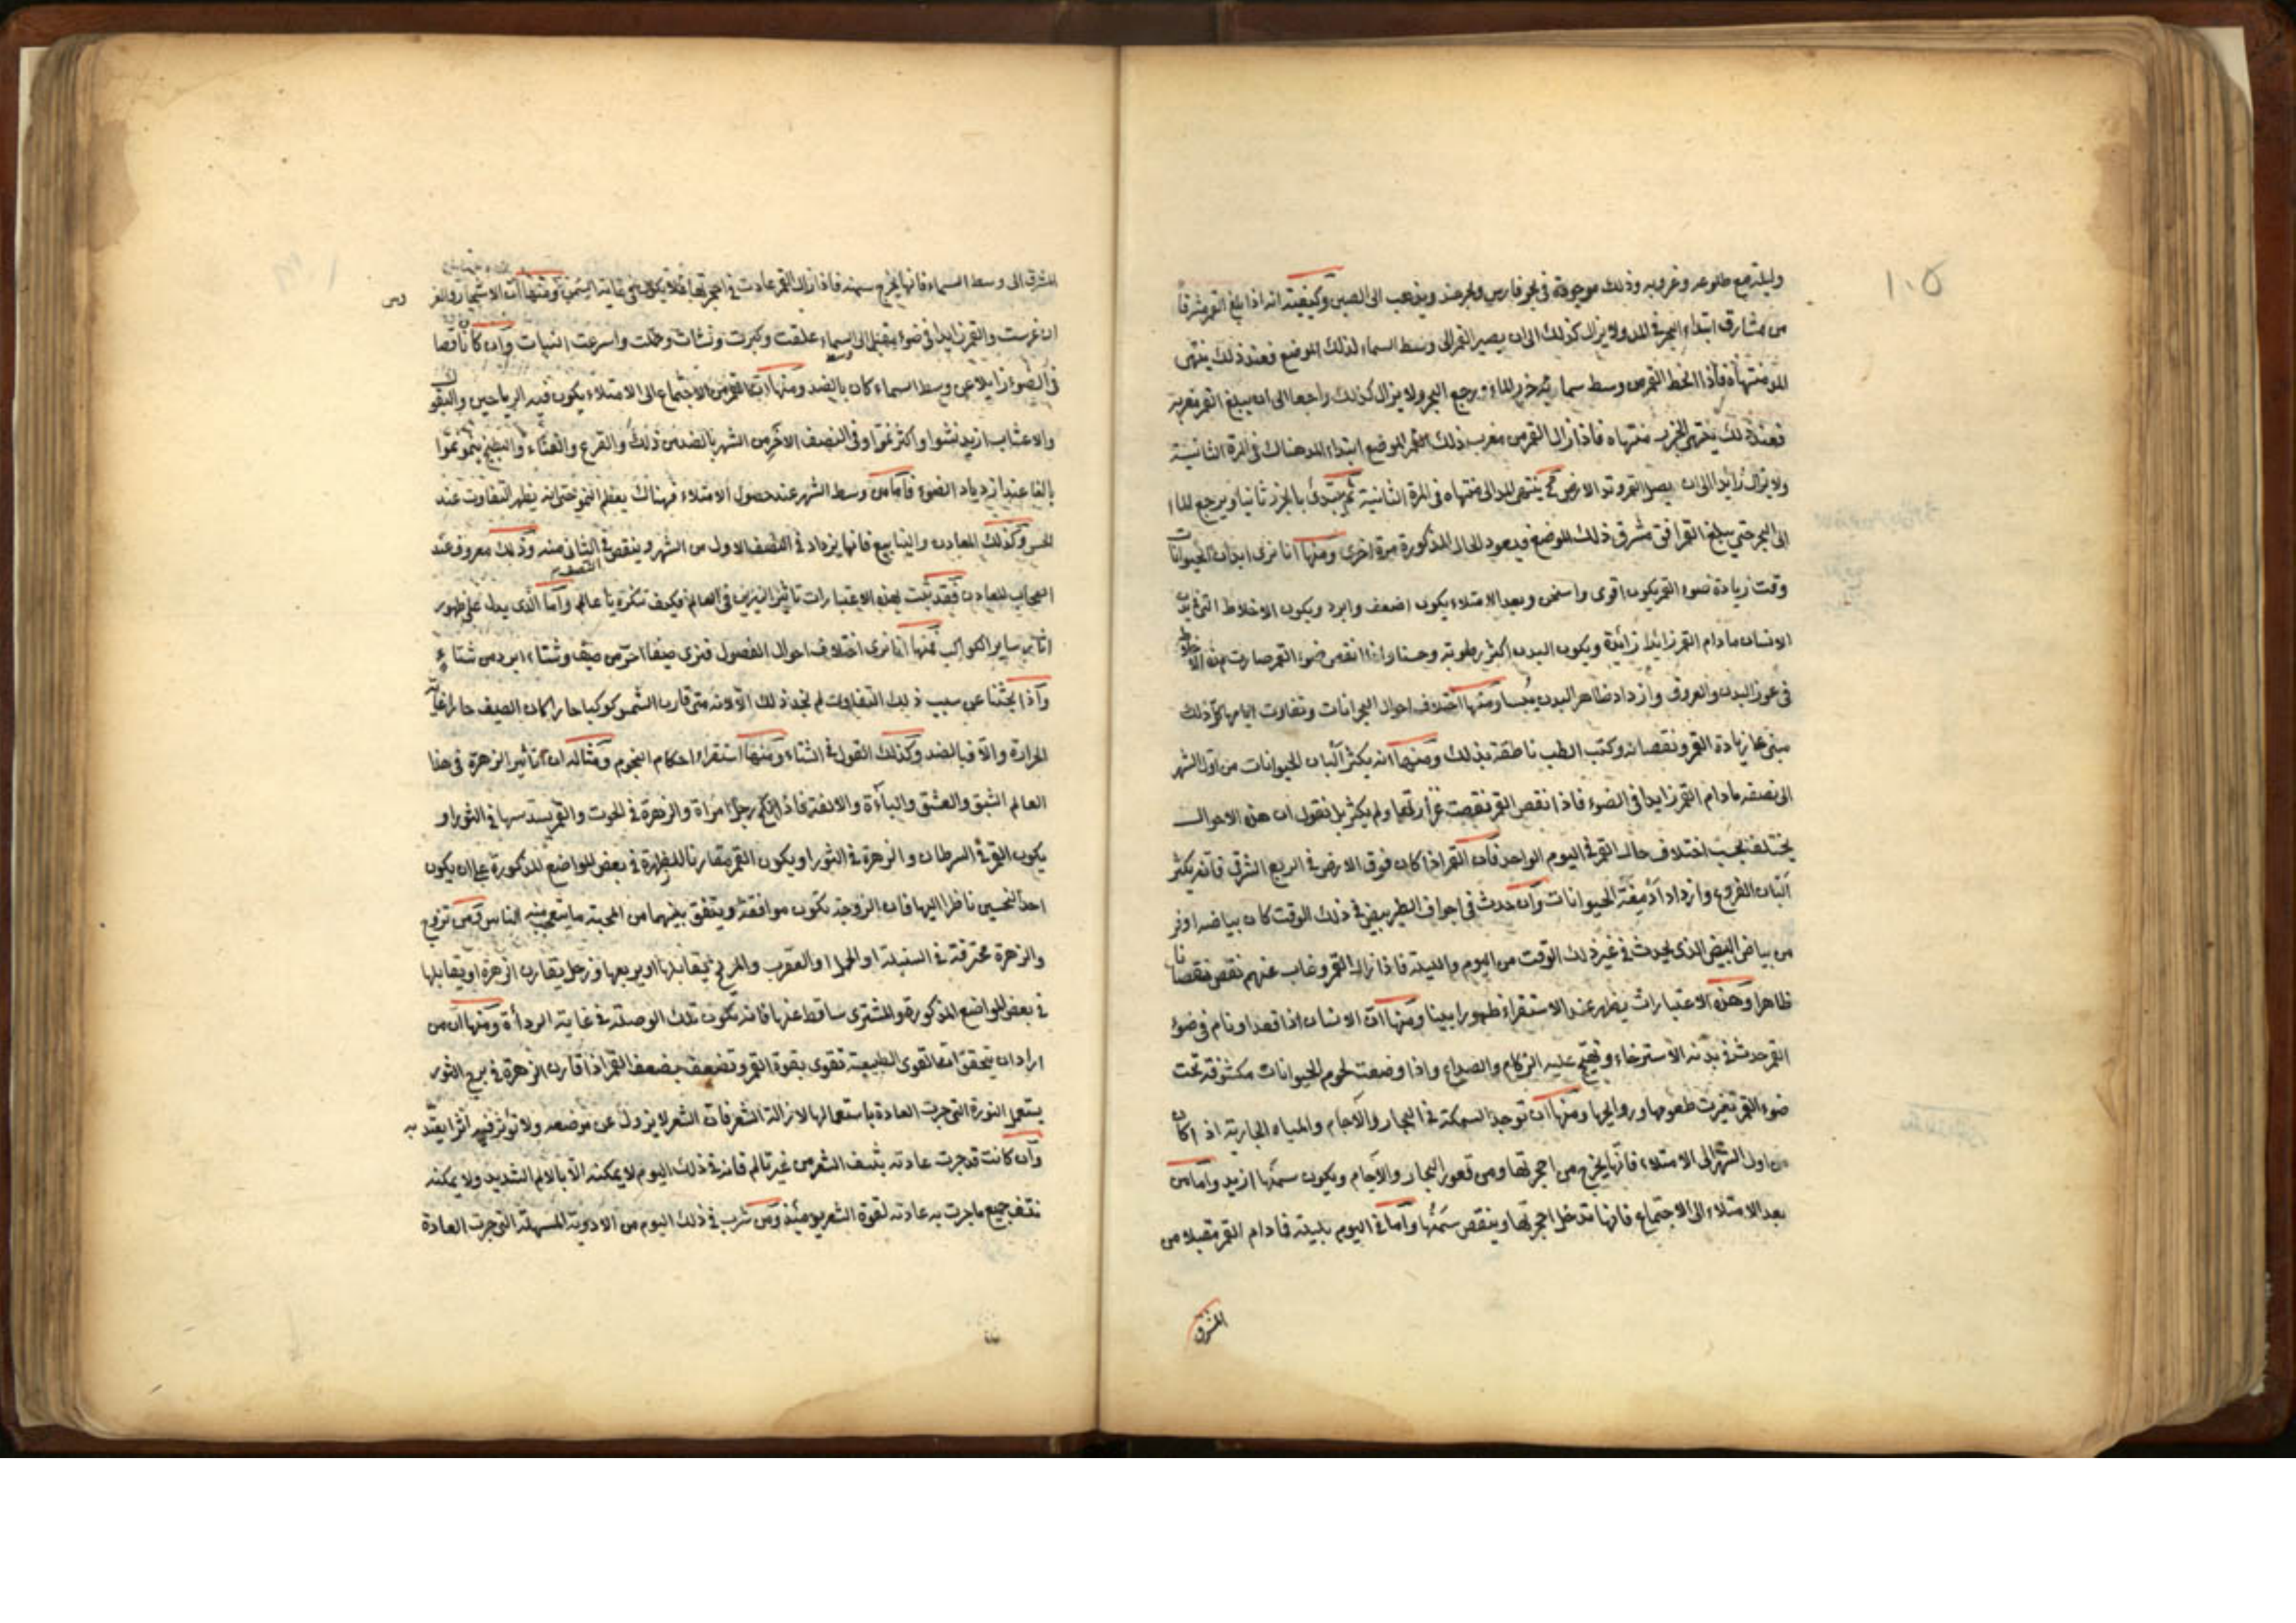 ١٠٥
وليلته مع طلوعه وغروبه وذلك موجودة فى بحر فارس وبحر هند ويذهب الى الصين وكيفيته انه اذا بلغ القمر مشرقاً
من مشارق ابتداء البحر فى المد ولا يزال كذلك الى ان يصير القمر الى وسط السماء لذلك الموضع فعند ذلك ينتهى
المد منتهاه فاذا انحط القمر من وسط سمائه جزر الماء ورجع البحر ولا يزال كذلك راجعا الى ان يبلغ القمر مغربه
فعند ذلك ينتهى الجزر منتهاه فاذا زال القمر من مغرب ذلك الموضع ابتداء المد هناك فى المرة الثانية
ولا يزال زايدا الى ان يصير القمر وتد الارض فح ينتهى المد الى منتهاه فى المرة الثانية ثم يبتدئ بالجزر ثانيا ويرجع الماء
الى البحر حتى يبلغ القمر افق مشرق ذلك الموضع فيعود الحال المذكورة مرة اخرى ومنها انا نرى ابدان الحيوانات
وقت زيادة ضوء القمر يكون اقوى واسخن وبعد الامتلاء يكون اضعف وابرد ويكون الاخلاط التى فى بدن
الانسان مادام القمر زائدا زائدة ويكون البدن اكثر رطوبة وحسنا واذا انقص ضوء القمر صارت هذه الاخلاط
فى غور البدن والعروق وازداد ظاهر البدن يبسا ومنها اختلاف احوال البحرانات وتفاوت ايامها كل ذلك
مبنى على زيادة القمر ونقصانه وكتب الطب ناطقة بذلك ومنها انه يكثر ألبان الحيوانات من اول الشهر
الى نصفه مادام القمر زايدا فى الضوء فاذا نقص القمر نقصت غزارتها ولم يكثر بل نقول ان هذه الاحوال
يختلف بحسب اختلاف حال القمر فى اليوم الواحد فان القمر اذا كان فوق الارض فى الربع الشرقى فانه يكثر
ألبان الضروع وازداد ادمغة الحيوانات وان حدث فى اجواف الطير بيض فى ذلك الوقت كان بياضه اوفر
من بياض البيض الذى يحدث فى غير ذلك الوقت من اليوم والليلة فاذا زال القمر وغاب عنهم نقص نقصانا
ظاهرا وهذه الاعتبارات يظهر عند الاستقراء ظهورا بينا ومنها ان الانسان اذا قعد او نام فى ضوء
القمر حدث فى بدنه الاسترخاء وتهيج عليه الزكام والصداع واذا وضعت لحوم الحيوانات مكشوفة تحت
ضوء القمر تغيرت طعومها وروائحها ومنها ان توجد السمكة فى البحار والآجام والمياه الجارية اذا كان
من اول الشهر الى الامتلاء فانها يخرج من اجحرتها ومن قعور البحار والآجام ويكون سمنها ازيد واما من
بعد الامتلاء الى الاجتماع فانها تدخل اجحرتها وينقص سمنها واما فى اليوم بليلته فمادام القمر مقبلا من
المشرق
المشرق الى وسط السماء فانها يخرج سمينه فاذا زال القمر عادت فى اجحرتها فلا يكون فى غاية السمن ومنها ان الاشجار والغرس
ان غرست والقمر زايدا فى ضوء مقبل الى وسط السماء علقت وكبرت ونشات وحملت واسرعت النبات وان كان ناقصا
فى الضوء زايلا عن وسط السماء كان بالضد ومنها ان القمر من الاجتماع الى الامتلاء يكون فيه الرياحين والبقول
والاعشاب ازيد نشوا واكثر نموا وفى النصف الآخر من الشهر بالضد من ذلك والقرع والقثاء والبطيخ ينمو نموا
بالغا عند ازدياد الضوء فاما من وسط الشهر عند حصول الامتلاء فهناك يعظم النمو حتى انه يظهر التفاوت عند
الحس وكذلك المعادن والينابيع فانها يزداد فى النصف الاول من الشهر وينقص فى النصف الثانى منه وذلك معروف عند
اصحاب المعادن فقد ثبت بهذه الاعتبارات تاثير النيرين فى العالم فكيف تنكره يا عالم واما الذى يدل على ظهور
اثار ساير الكواكب فمنها انا نرى اختلاف احوال الفصول فنرى صيفا احر من صيف وشتاء ابرد من شتاء
واذا بحثنا عن سبب ذلك التفاوت لم نجد ذلك الا لانه متى قارب الشمس كوكبا حارا كان الصيف حارا غاية
الحرارة والا فبالضد وكذلك القول فى الشتاء ومنها استقراء احكام النجوم ومثاله ان تاثير الزهرة فى هذا
العالم الشبق والعشق والباءة والالفة فاذا نكح رجل امراة والزهرة فى الحوت والقمر يسدسها فى الثور او
يكون القمر فى السرطان والزهرة فى الثور او يكون القمر مقارنا للزهرة فى بعض المواضع المذكورة على ان يكون
احد النحسين ناظرا اليها فان الزوجة تكون موافقة ويتفق بينهما من المحبة ما يتعجب منه الناس ومن تزوج
والزهرة محترقة فى السنبلة او الحمل او العقرب والمريخ يقابلها او يربعها وزحل يقارن الزهرة او يقابلها
فى بعض المواضع المذكورة والمشترى ساقط عنها فانه تكون تلك الوصلة فى غاية الرداءة ومنها ان من
اراد ان يتحقق ان القوى الطبيعية تقوى بقوة القمر وتضعف بضعف القمر اذا قارن الزهرة فى برج الثور
يستعمل النورة التى جرت العادة باستعمالها لازالة الشعر فان الشعر لا يزول عن موضعه ولا تؤثر فيه اثرا يعتد به
وان كانت قد جرت عادته بنتف الشعر من غير تالم فانه فى ذلك اليوم لا يمكنه الا بالالم الشديد ولا يمكنه
نتف جميع ما جرت به عادته لقوة الشعر يومئذ ومن شرب فى ذلك اليوم من الادوية المسهلة التى جرت العادة